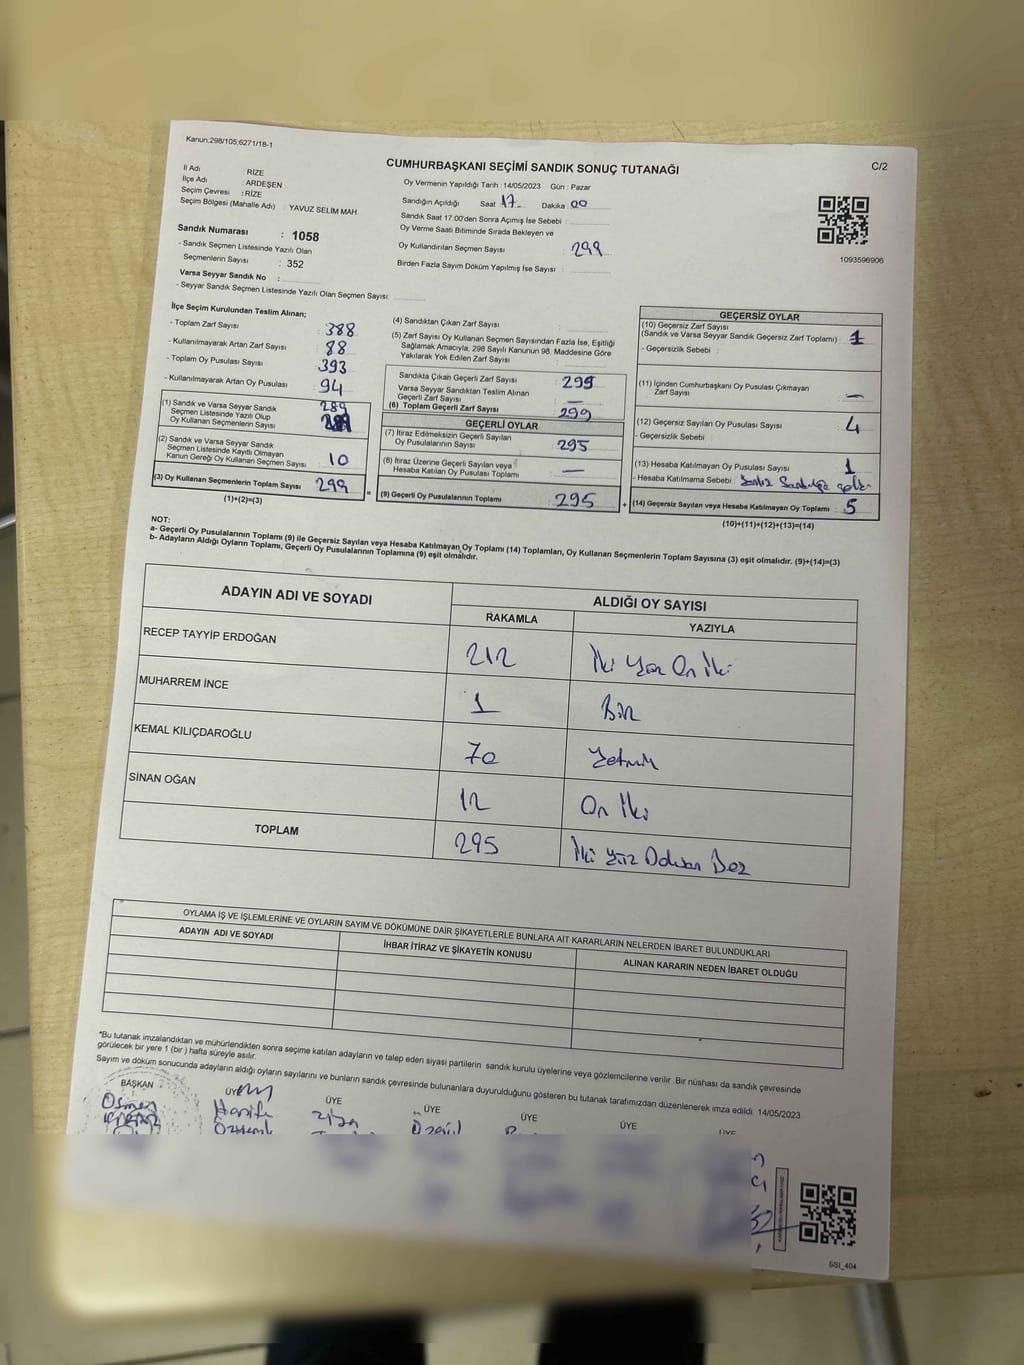 Kanun;298/105;6271/18-1
C/2
CUMHURBAŞKANI SEÇİMİ SANDIK SONUÇ TUTANAĞI
İl Adı : RİZE
İlçe Adı : ARDEŞEN
Seçim Çevresi : RİZE
Seçim Bölgesi (Mahalle Adı) : YAVUZ SELİM MAH
Sandık Numarası : 1058
- Sandık Seçmen Listesinde Yazılı Olan
Seçmenlerin Sayısı : 352
Varsa Seyyar Sandık No :
- Seyyar Sandık Seçmen Listesinde Yazılı Olan Seçmen Sayısı:
Oy Vermenin Yapıldığı Tarih : 14/05/2023 Gün : Pazar
Sandığın Açıldığı Saat 17 Dakika 00
Sandık Saat 17.00'den Sonra Açımış İse Sebebi :
Oy Verme Saati Bitiminde Sırada Bekleyen ve
Oy Kullandırılan Seçmen Sayısı : 299
Birden Fazla Sayım Döküm Yapılmış İse Sayısı :
1093596906
İlçe Seçim Kurulundan Teslim Alınan;
- Toplam Zarf Sayısı : 388
- Kullanılmayarak Artan Zarf Sayısı : 88
- Toplam Oy Pusulası Sayısı : 393
- Kullanılmayarak Artan Oy Pusulası : 94
(1) Sandık ve Varsa Seyyar Sandık
Seçmen Listesinde Yazılı Olup
Oy Kullanan Seçmen Sayısı : 289
(2) Sandık ve Varsa Seyyar Sandık
Seçmen Listesinde Kayıtlı Olmayan
Kanun Gereği Oy Kullanan Seçmen Sayısı : 10
(3) Oy Kullanan Seçmenlerin Toplam Sayısı : 299
(1)+(2)=(3)
(4) Sandıktan Çıkan Zarf Sayısı :
(5) Zarf Sayısı Oy Kullanan Seçmen Sayısından Fazla İse, Eşitliği
Sağlamak Amacıyla, 298 Sayılı Kanunun 98. Maddesine Göre
Yakılarak Yok Edilen Zarf Sayısı :
Sandıkta Çıkan Geçerli Zarf Sayısı : 299
Varsa Seyyar Sandıktan Teslim Alınan
Geçerli Zarf Sayısı : —
(6) Toplam Geçerli Zarf Sayısı : 299
GEÇERLİ OYLAR
(7) İtiraz Edilmeksizin Geçerli Sayılan
Oy Pusulalarının Sayısı : 295
(8) İtiraz Üzerine Geçerli Sayılan veya
Hesaba Katılan Oy Pusulası Toplamı : —
(9) Geçerli Oy Pusulalarının Toplamı : 295
GEÇERSİZ OYLAR
(10) Geçersiz Zarf Sayısı
(Sandık ve Varsa Seyyar Sandık Geçersiz Zarf Toplamı) : 1
- Geçersizlik Sebebi :
(11) İçinden Cumhurbaşkanı Oy Pusulası Çıkmayan
Zarf Sayısı : —
(12) Geçersiz Sayılan Oy Pusulası Sayısı : 4
- Geçersizlik Sebebi :
(13) Hesaba Katılmayan Oy Pusulası Sayısı : 1
- Hesaba Katılmama Sebebi :
(14) Geçersiz Sayılan veya Hesaba Katılmayan Oy Toplamı : 5
(10)+(11)+(12)+(13)=(14)
NOT:
a- Geçerli Oy Pusulalarının Toplamı (9) ile Geçersiz Sayılan veya Hesaba Katılmayan Oy Toplamı (14) Toplamları, Oy Kullanan Seçmenlerin Toplam Sayısına (3) eşit olmalıdır. (9)+(14)=(3)
b- Adayların Aldığı Oyların Toplamı, Geçerli Oy Pusulalarının Toplamına (9) eşit olmalıdır.
ADAYIN ADI VE SOYADI
ALDIĞI OY SAYISI
RAKAMLA YAZIYLA
RECEP TAYYİP ERDOĞAN 212 İki Yüz On İki
MUHARREM İNCE 1 Bir
KEMAL KILIÇDAROĞLU 70 Yetmiş
SİNAN OĞAN 12 On İki
TOPLAM 295 İki Yüz Doksan Beş
OYLAMA İŞ VE İŞLEMLERİNE VE OYLARIN SAYIM VE DÖKÜMÜNE DAİR ŞİKAYETLERLE BUNLARA AİT KARARLARIN NELERDEN İBARET BULUNDUKLARI
ADAYIN ADI VE SOYADI İHBAR İTİRAZ VE ŞİKAYETİN KONUSU ALINAN KARARIN NEDEN İBARET OLDUĞU
*Bu tutanak imzalandıktan ve mühürlendikten sonra seçime katılan adayların ve talep eden siyasi partilerin sandık kurulu üyelerine veya gözlemcilerine verilir. Bir nüshası da sandık çevresinde
görülecek bir yere 1 (bir) hafta süreyle asılır.
Sayım ve döküm sonucunda adayların aldığı oyların sayılarını ve bunların sandık çevresinde bulunanlara duyurulduğunu gösteren bu tutanak tarafımızdan düzenlenerek imza edildi. 14/05/2023
BAŞKAN ÜYE ÜYE ÜYE ÜYE ÜYE ÜYE
Osman Hanife Ziya
SSI_404